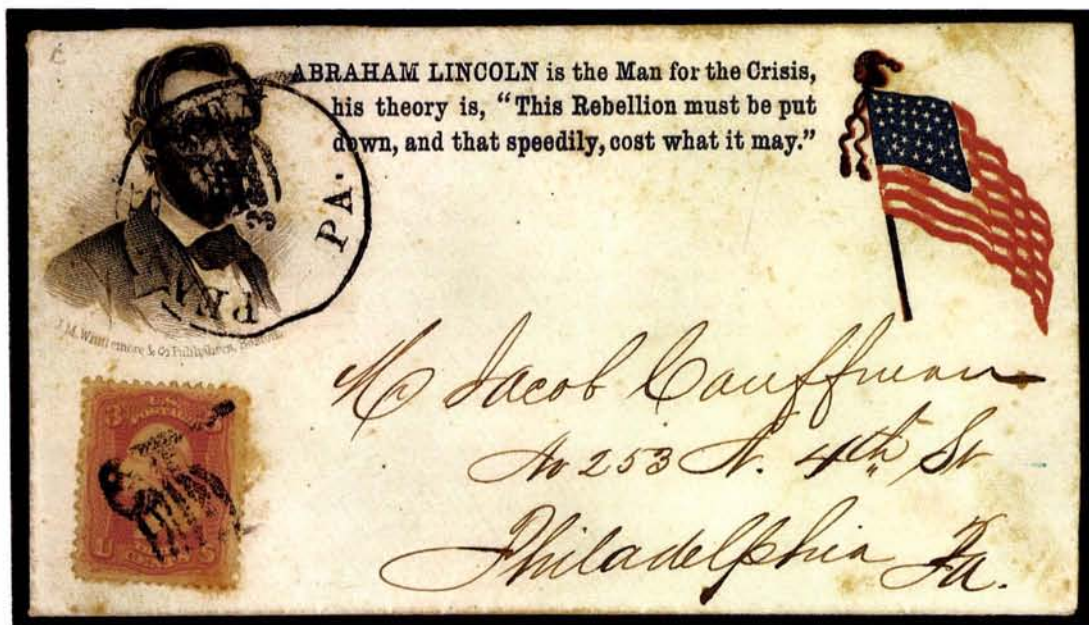 ABRAHAM LINCOLN is the Man for the Crisis,
his theory is, “This Rebellion must be put
down, and that speedily, cost what it may.”
PA.
J. M. Whittemore & Co Publishers, Boston.
Mr Jacob Cauffman
No 253 N. 4th St
Philadelphia Pa.
3
U.S.
POSTAGE
U S